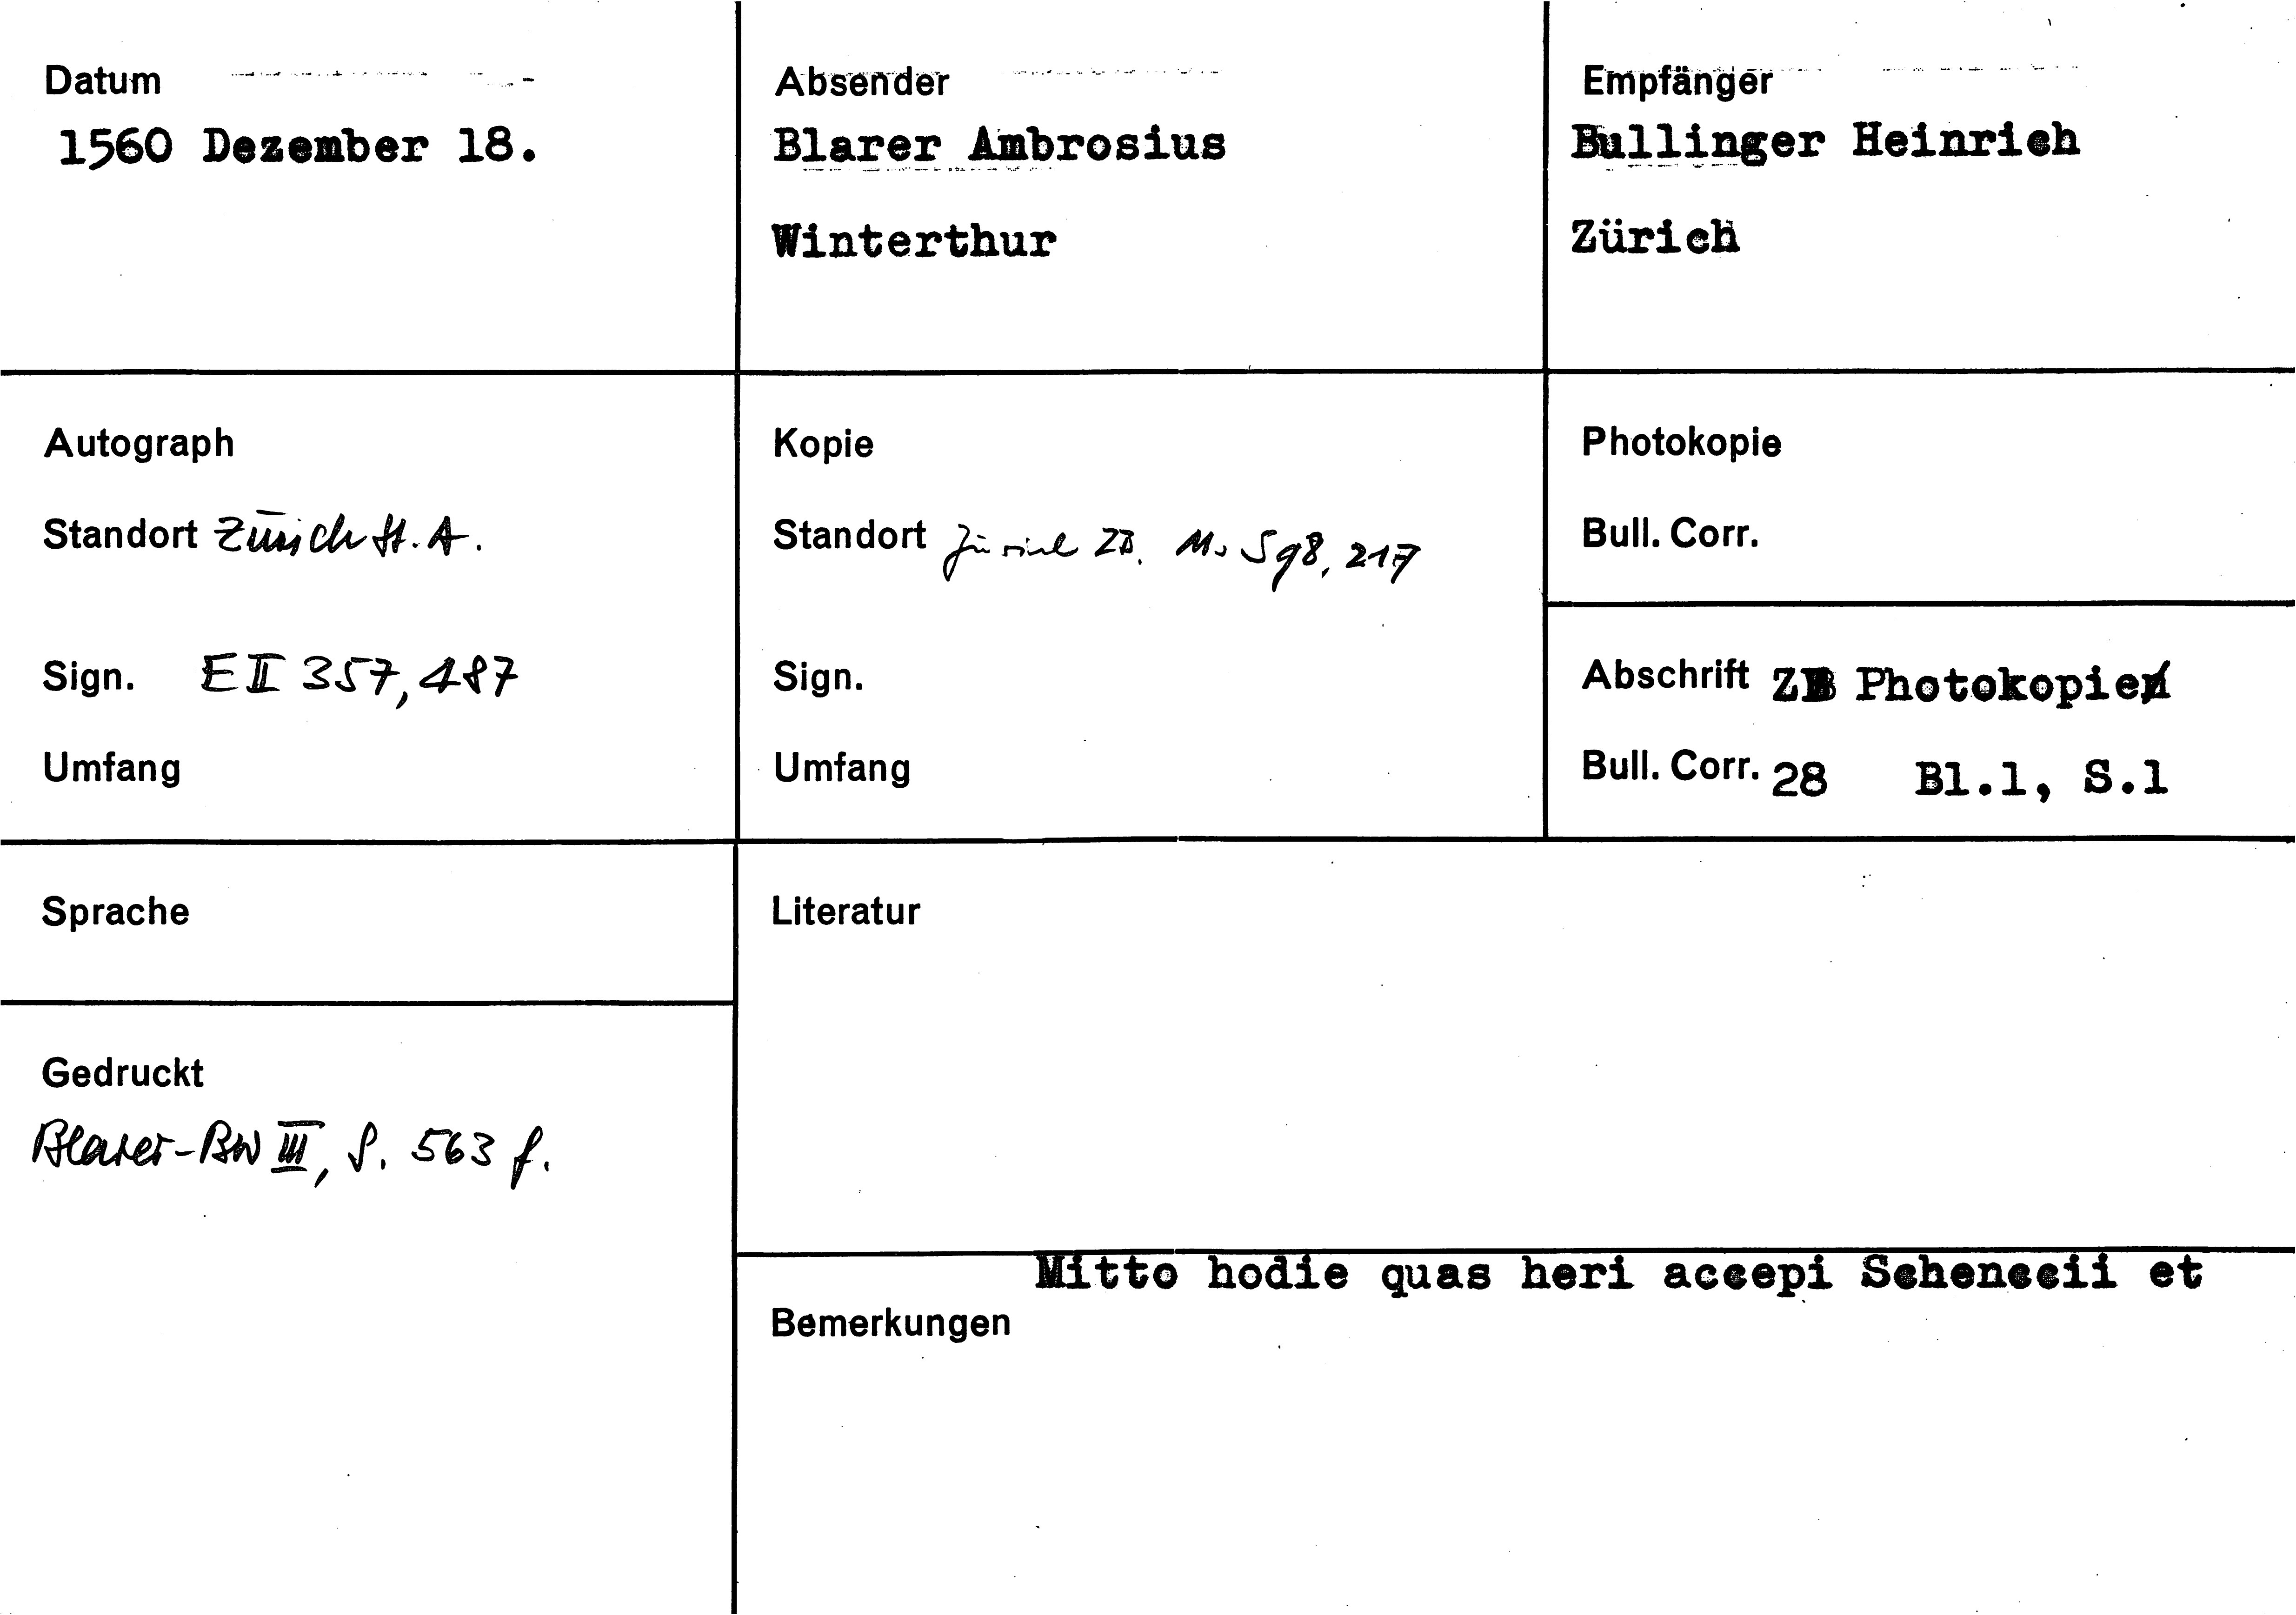 Datum
1560 Dezember 18.
Absender
Blarer Ambrosius
Winterthur
Empfänger
Bullinger Heinrich
Zürich
Autograph
Standort Zürich St. A.
Sign. E II 357, 487
Umfang
Kopie
Standort Zürich ZB. Ms S 98, 217
Sign.
Umfang
Photokopie
Bull. Corr.
Abschrift ZB Photokopie
Bull. Corr. 28 Bl.1, S.1
Sprache
Literatur
Gedruckt
Blarer-BW III, S. 563 f.
Mitto hodie quas heri accepi Schenccii et
Bemerkungen